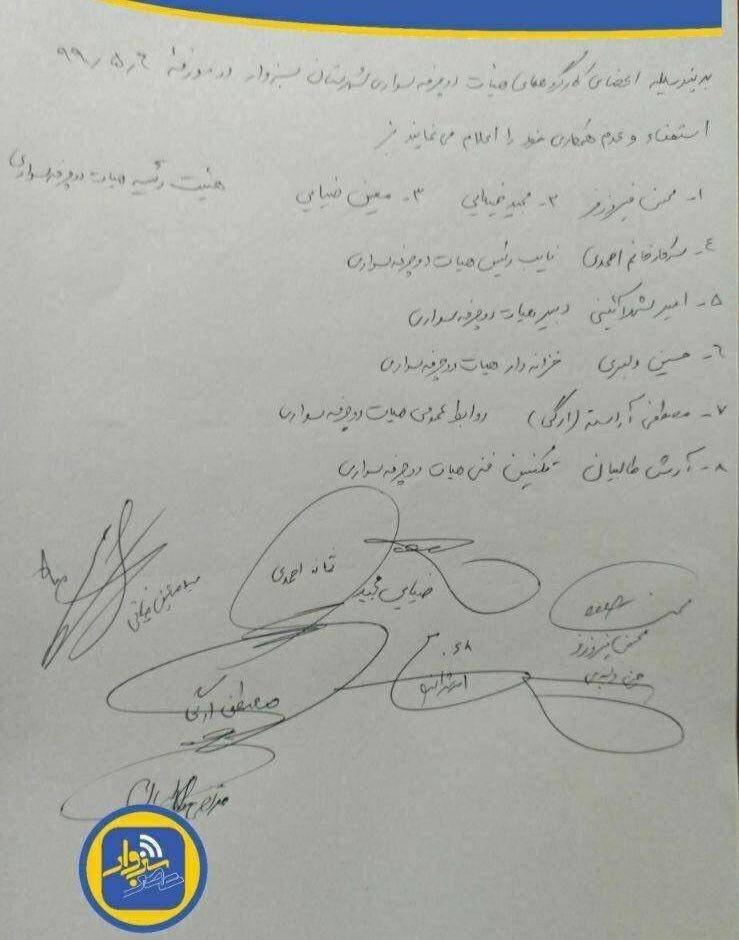 بدینوسیله اعضای کارگروههای هیأت دوچرخه سواری شهرستان سبزوار در مورخهٔ ۹۹/۵/۶
استعفاء و عدم همکاری خود را اعلام می نمایند
۱- محسن فیروزفر ۲- مجید ضیایی ۳- معین ضیایی هئیت رئیسه هیات دوچرخه سواری
۴- سرکار خانم احمدی نایب رئیس هیات دوچرخه سواری
۵- امیر دبیر هیات دوچرخه سواری
۶- حسین دلبری خزانه دار هیات دوچرخه سواری
۷- مصطفی آراسته (ارگی) روابط عمومی هیات دوچرخه سواری
۸- آرش طالبیان فنی هیات دوچرخه سواری
احمدی
ضیایی مجید
محسن
مصطفی ارگی
سبزوار